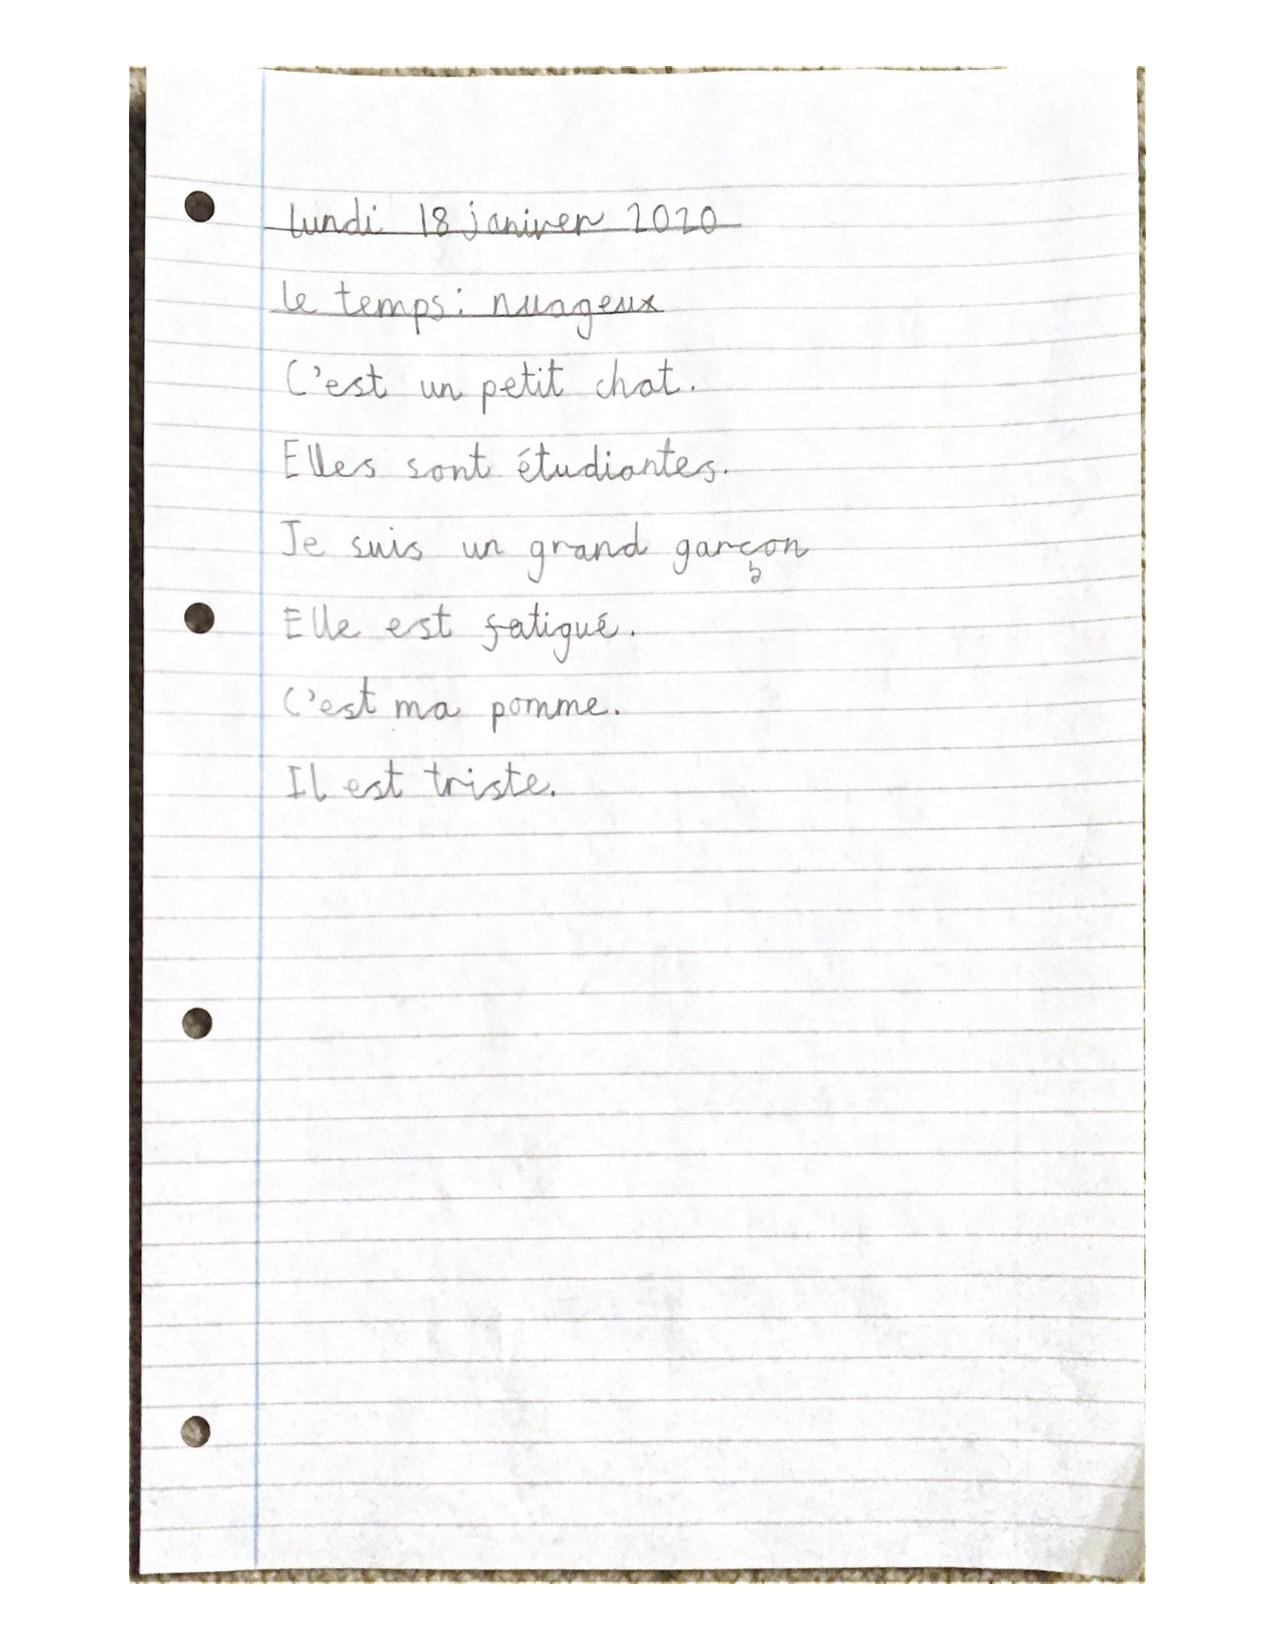 lundi 18 janiver 2020
le temps: nuageux
C'est un petit chat.
Elles sont étudiantes.
Je suis un grand garçon
Elle est fatigué.
C'est ma pomme.
Il est triste.